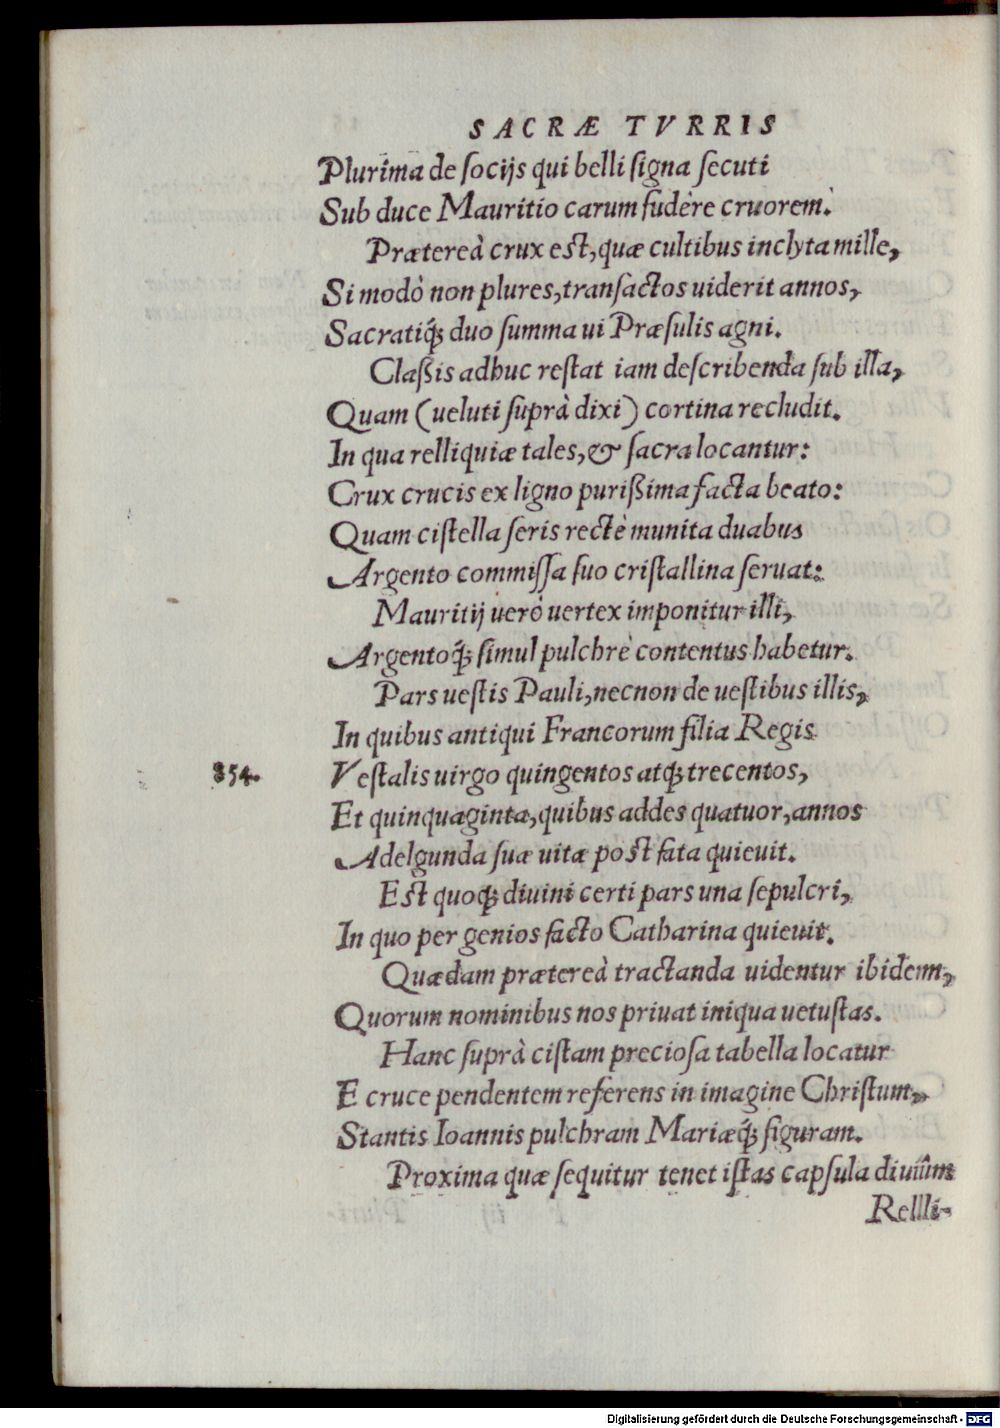 SACRÆ TVRRIS
Plurima de ſocijs qui belli ſigna ſecuti
Sub duce Mauritio carum fudêre cruorem.
Prætereà crux est, quæ cultibus inclyta mille,
Si modò non plures, tranſactos uiderit annos,
Sacratiq́; duo ſumma ui Præſulis agni.
Claßis adhuc reſtat iam deſcribenda ſub illa,
Quam (ueluti ſuprà dixi) cortina recludit.
In qua relliquiæ tales, & ſacra locantur:
Crux crucis ex ligno purißima facta beato:
Quam ciſtella ſeris rectè munita duabus
Argento commiſſa ſuo criſtallina ſeruat:
Mauritij uerò uertex imponitur illi,
Argentoq́; ſimul pulchrè contentus habetur.
Pars ueſtis Pauli, necnon de ueſtibus illis,
In quibus antiqui Francorum filia Regis
854.
Veſtalis uirgo quingentos atq; trecentos,
Et quinquaginta, quibus addes quatuor, annos
Adelgunda ſuæ uitæ post fata quieuit.
Est quoq; diuini certi pars una ſepulcri,
In quo per genios facto Catharina quieuit.
Quædam prætereà tractanda uidentur ibidem,
Quorum nominibus nos priuat iniqua uetuſtas.
Hanc ſuprà ciſtam precioſa tabella locatur
E cruce pendentem referens in imagine Chriſtum,
Stantis Ioannis pulchram Mariæq́; figuram.
Proxima quæ ſequitur tenet iſtas capſula diuûm
Relli-
Digitalisierung gefördert durch die Deutsche Forschungsgemeinschaft - DFG